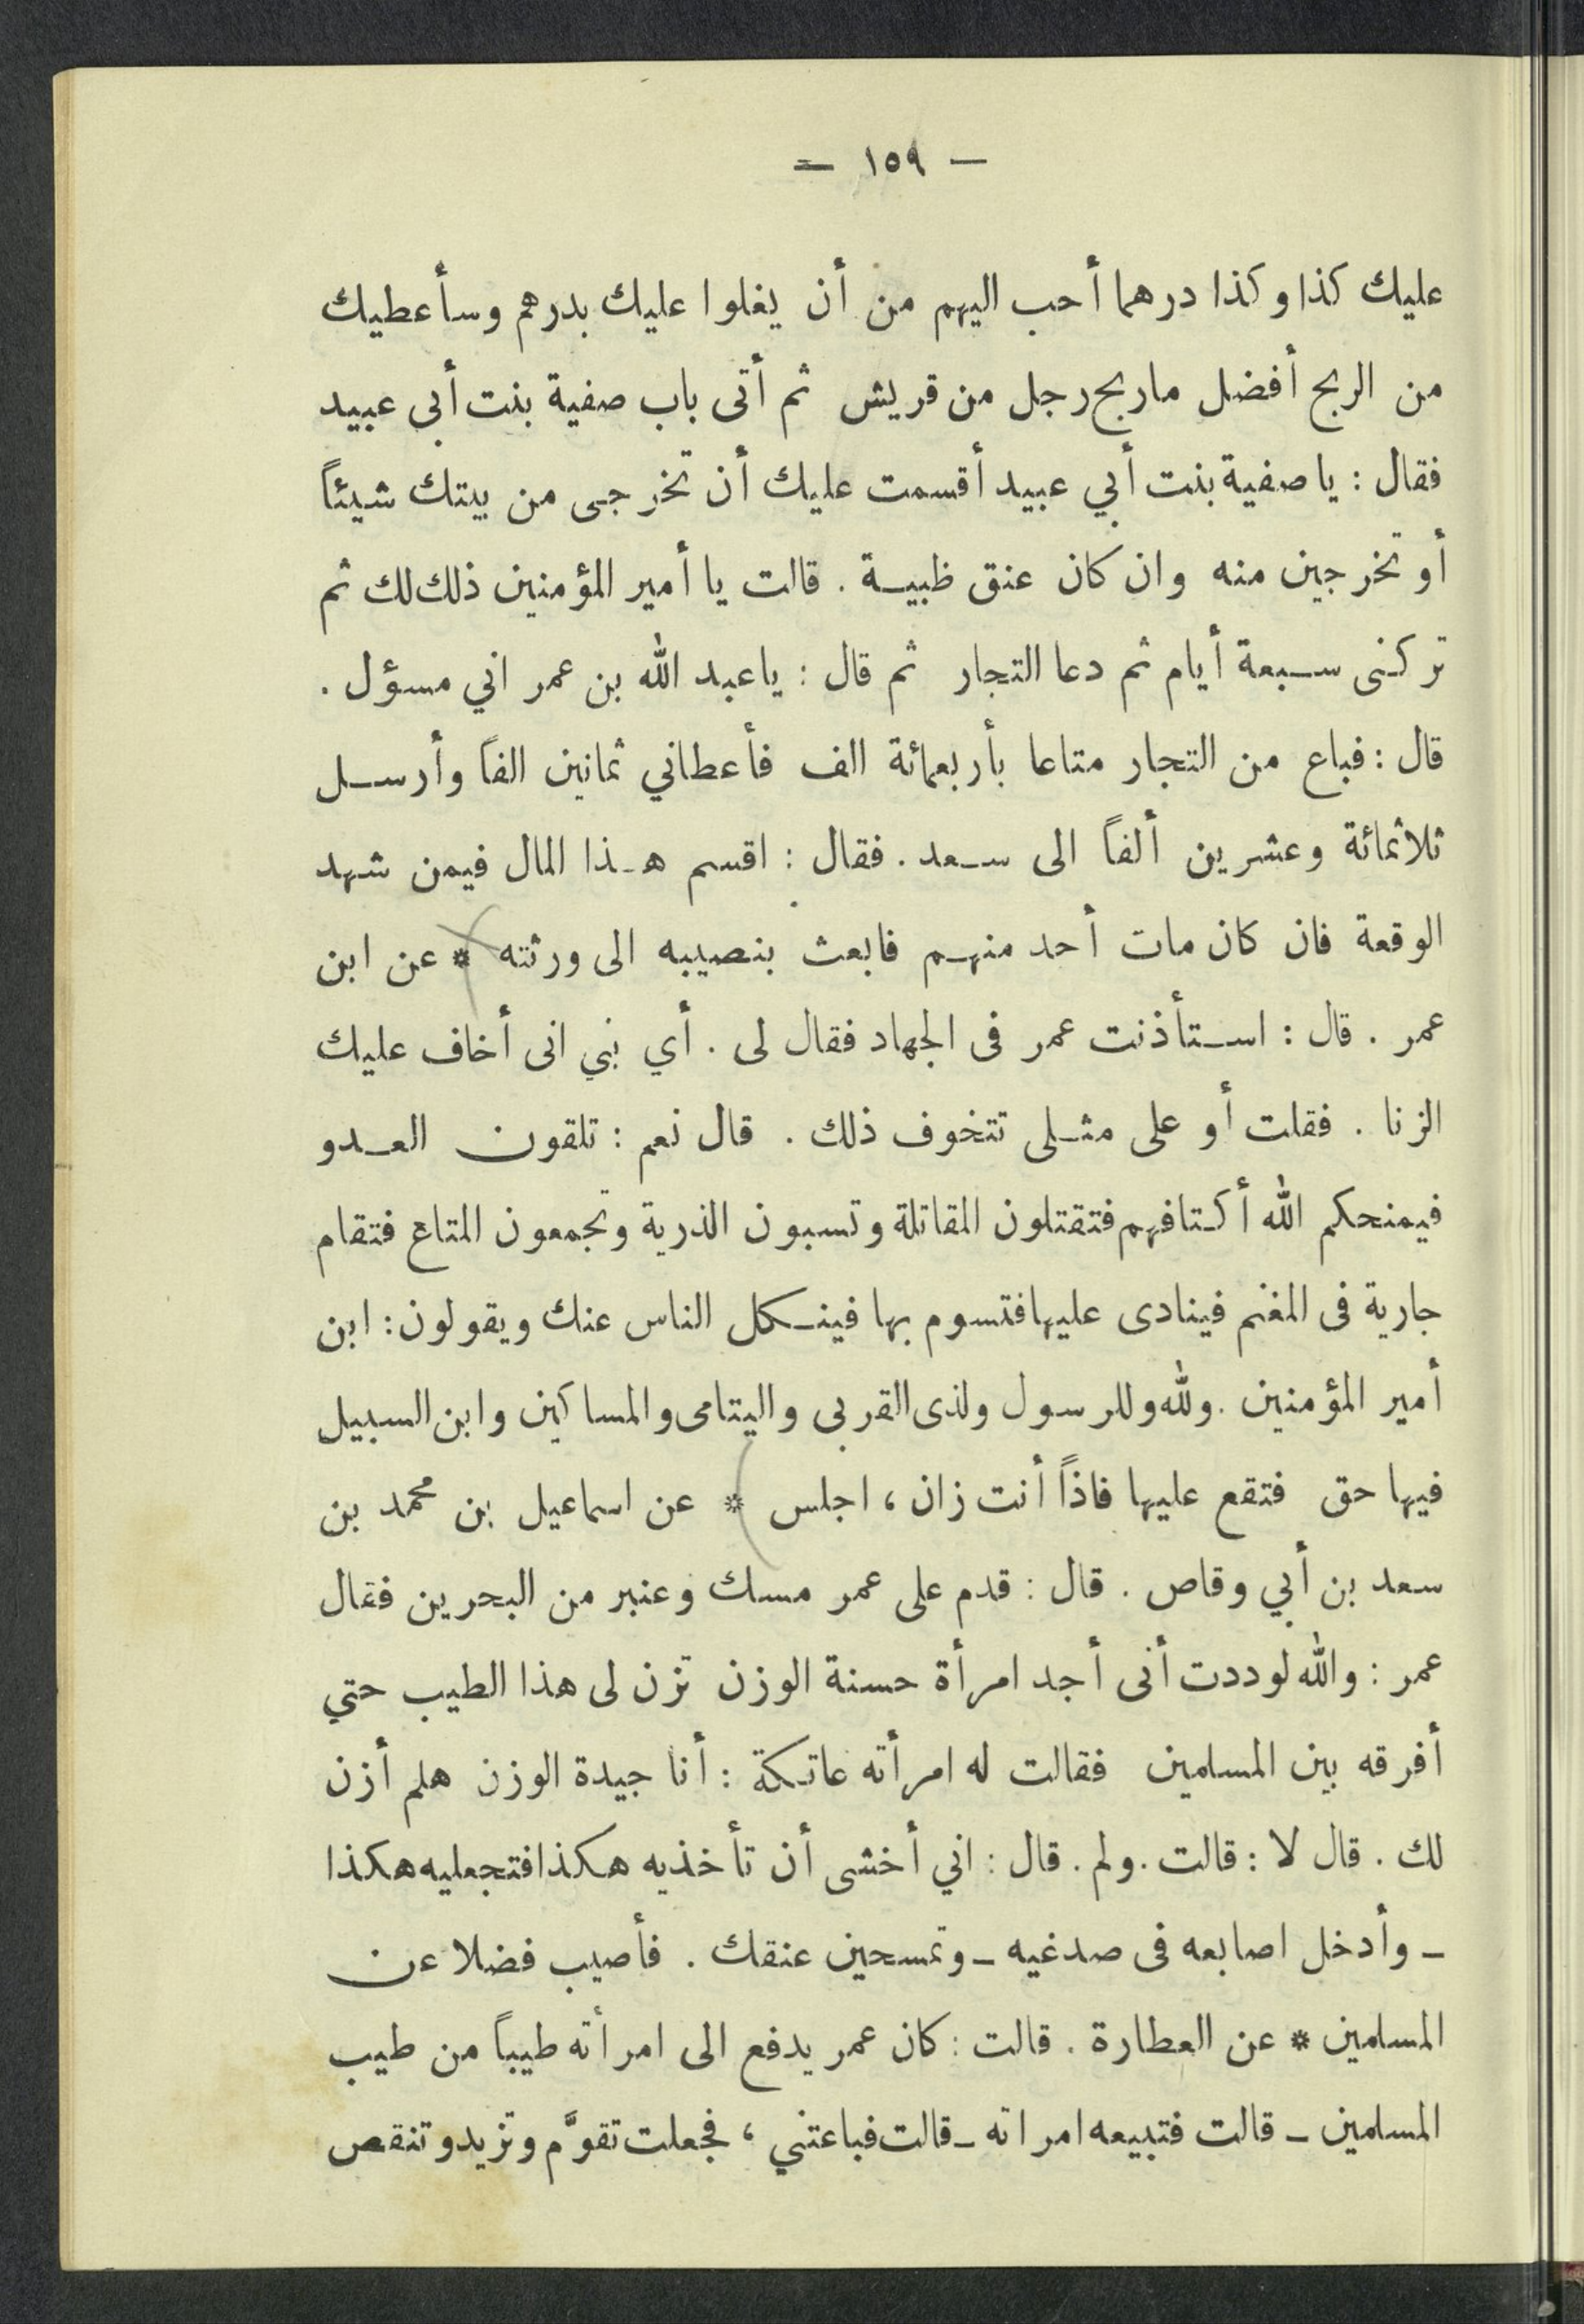 — ١٥٩ —
عليك كذا وكذا درهما أحب اليهم من أن يغلوا عليك بدرهم وسأعطيك
من الربح أفضل ماربح رجل من قريش ثم أتى باب صفية بنت أبى عبيد
فقال : يا صفية بنت أبي عبيد أقسمت عليك أن تخرجى من بيتك شيئاً
أو تخرجين منه وان كان عنق ظبية . قالت يا أمير المؤمنين ذلك لك ثم
تركنى سبعة أيام ثم دعا التجار ثم قال : ياعبد الله بن عمر اني مسؤل .
قال : فباع من التجار متاعا بأربعمائة الف فأعطاني ثمانين الفاً وأرسل
ثلاثمائة وعشرين ألفاً الى سعد . فقال : اقسم هذا المال فيمن شهد
الوقعة فان كان مات أحد منهم فابعث بنصيبه الى ورثته * عن ابن
عمر . قال : استأذنت عمر فى الجهاد فقال لى . أي بني انى أخاف عليك
الزنا . فقلت أو على مثلى تتخوف ذلك . قال نعم : تلقون العدو
فيمنحكم الله أكتافهم فتقتلون المقاتلة وتسبون الذرية وتجمعون المتاع فتقام
جارية فى المغنم فينادى عليها فتسوم بها فينكل الناس عنك ويقولون : ابن
أمير المؤمنين . ولله وللرسول ولذى القربى واليتامى والمساكين وابن السبيل
فيها حق فتقع عليها فاذاً أنت زان ، اجلس * عن اسماعيل بن محمد بن
سعد بن أبي وقاص . قال : قدم على عمر مسك وعنبر من البحرين فقال
عمر : والله لوددت أنى أجد امرأة حسنة الوزن تزن لى هذا الطيب حتي
أفرقه بين المسلمين فقالت له امرأته عاتكة : أنا جيدة الوزن هلم أزن
لك . قال لا : قالت . ولم . قال : اني أخشى أن تأخذيه هكذا فتجعليه هكذا
– وأدخل اصابعه فى صدغيه – وتمسحين عنقك . فأصيب فضلا عن
المسلمين * عن العطارة . قالت : كان عمر يدفع الى امرأته طيباً من طيب
المسلمين – قالت فتبيعه امراته – قالت فباعتني ، فجعلت تقوَّم وتزيد وتنقص